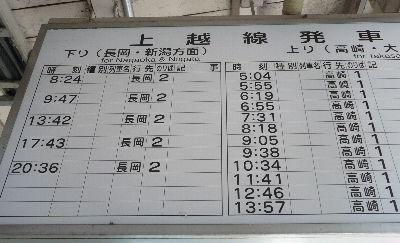 上越線発車
下り（長岡・新潟方面）
for Nagaoka & Niigata
時 刻 種別 列車名 行先 のりば 記 事
8:24 長岡 2
9:47 長岡 2
13:42 長岡 2
17:43 長岡 2
20:36 長岡 2
上り（高崎・大
for Takasa
時 刻 種別 列車名 行先 のりば 記
5:04 高崎 1
5:55 高崎 1
6:19 高崎 1
6:55 高崎 1
7:31 高崎 1
8:18 高崎 1
9:05 高崎 1
9:38 高崎 1
10:34 高崎 1
11:41 高崎 1
12:46 高崎 1
13:57 高崎 1